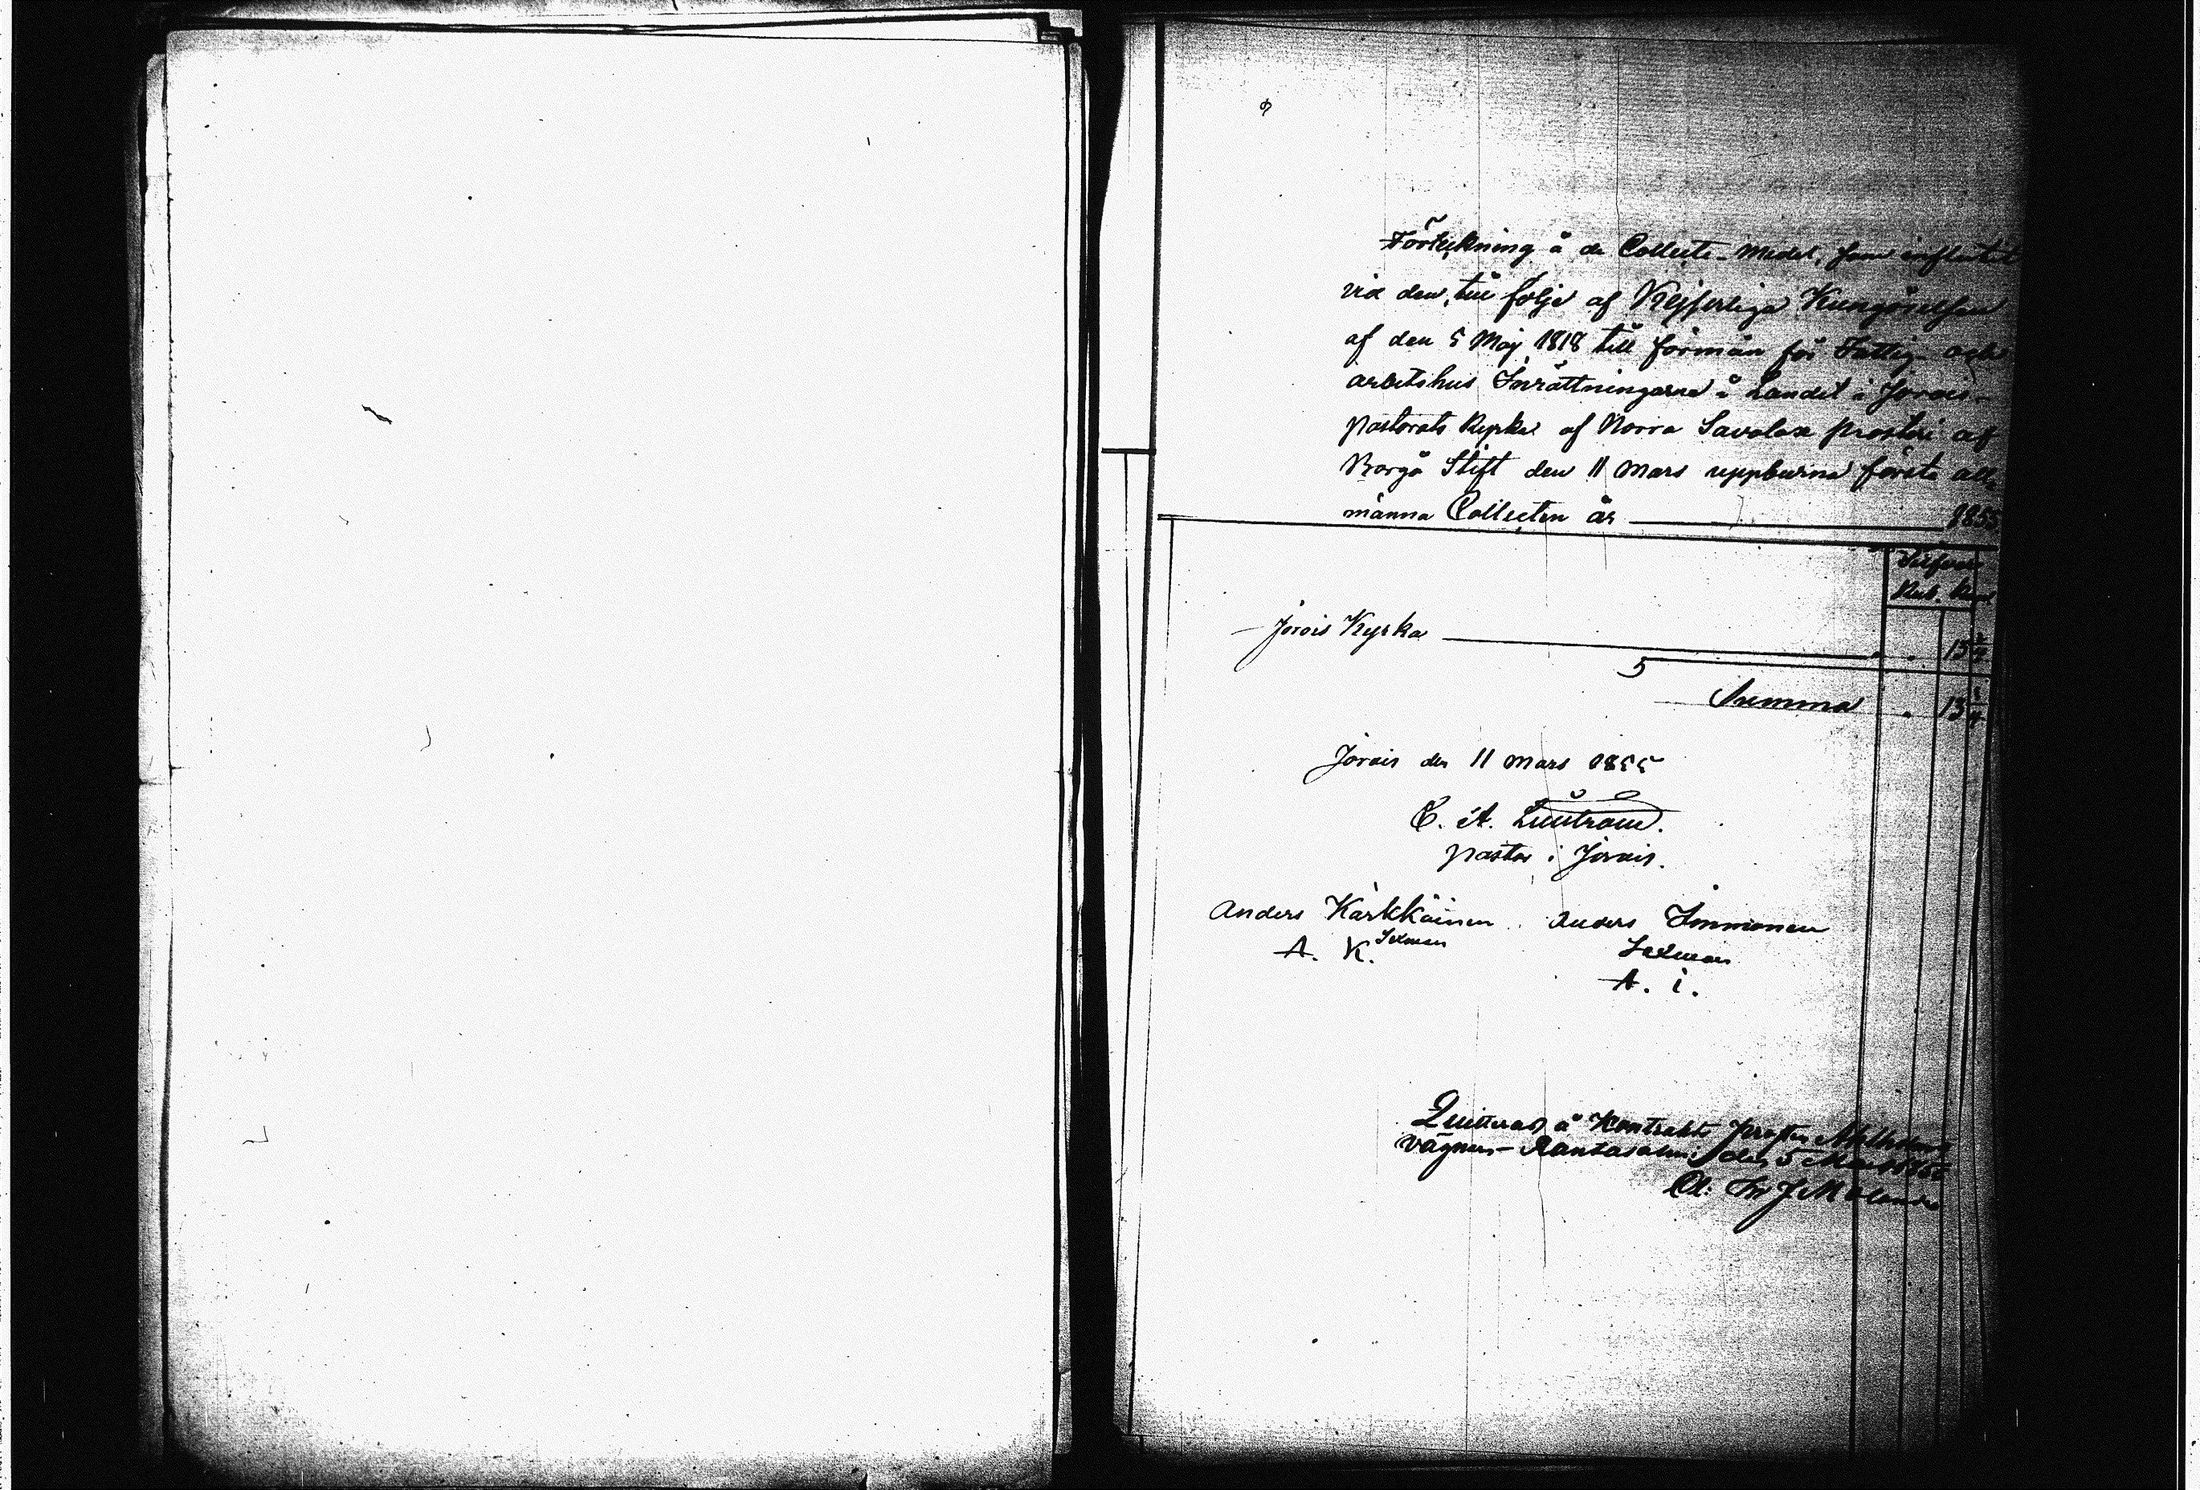 Förteckning å de Collecte-Medel, som influtit
vid den, till följe af Kejserliga Kungörelsen
af den 5 Maj 1818 till förmån för Fattig- och
arbetshus Inrättningarne å Landet i Jorois
pastorats Kyrka af Norra Savolax prosteri af
Borgå Stift den 11 Mars uppburne första all-
männa Collecten år 1855
Silfver
Rub. Kop.
Jorois Kyrka
Summa 13
Jorois den 11 Mars 1855
C. A.
pastor i Jorois.
Anders Kärkkäinen Anders Immonen
A. K. Sexman Sexman
A. i.
Quitteras å Kontrakts Prosten
vägnar- Rantasalmi den 5